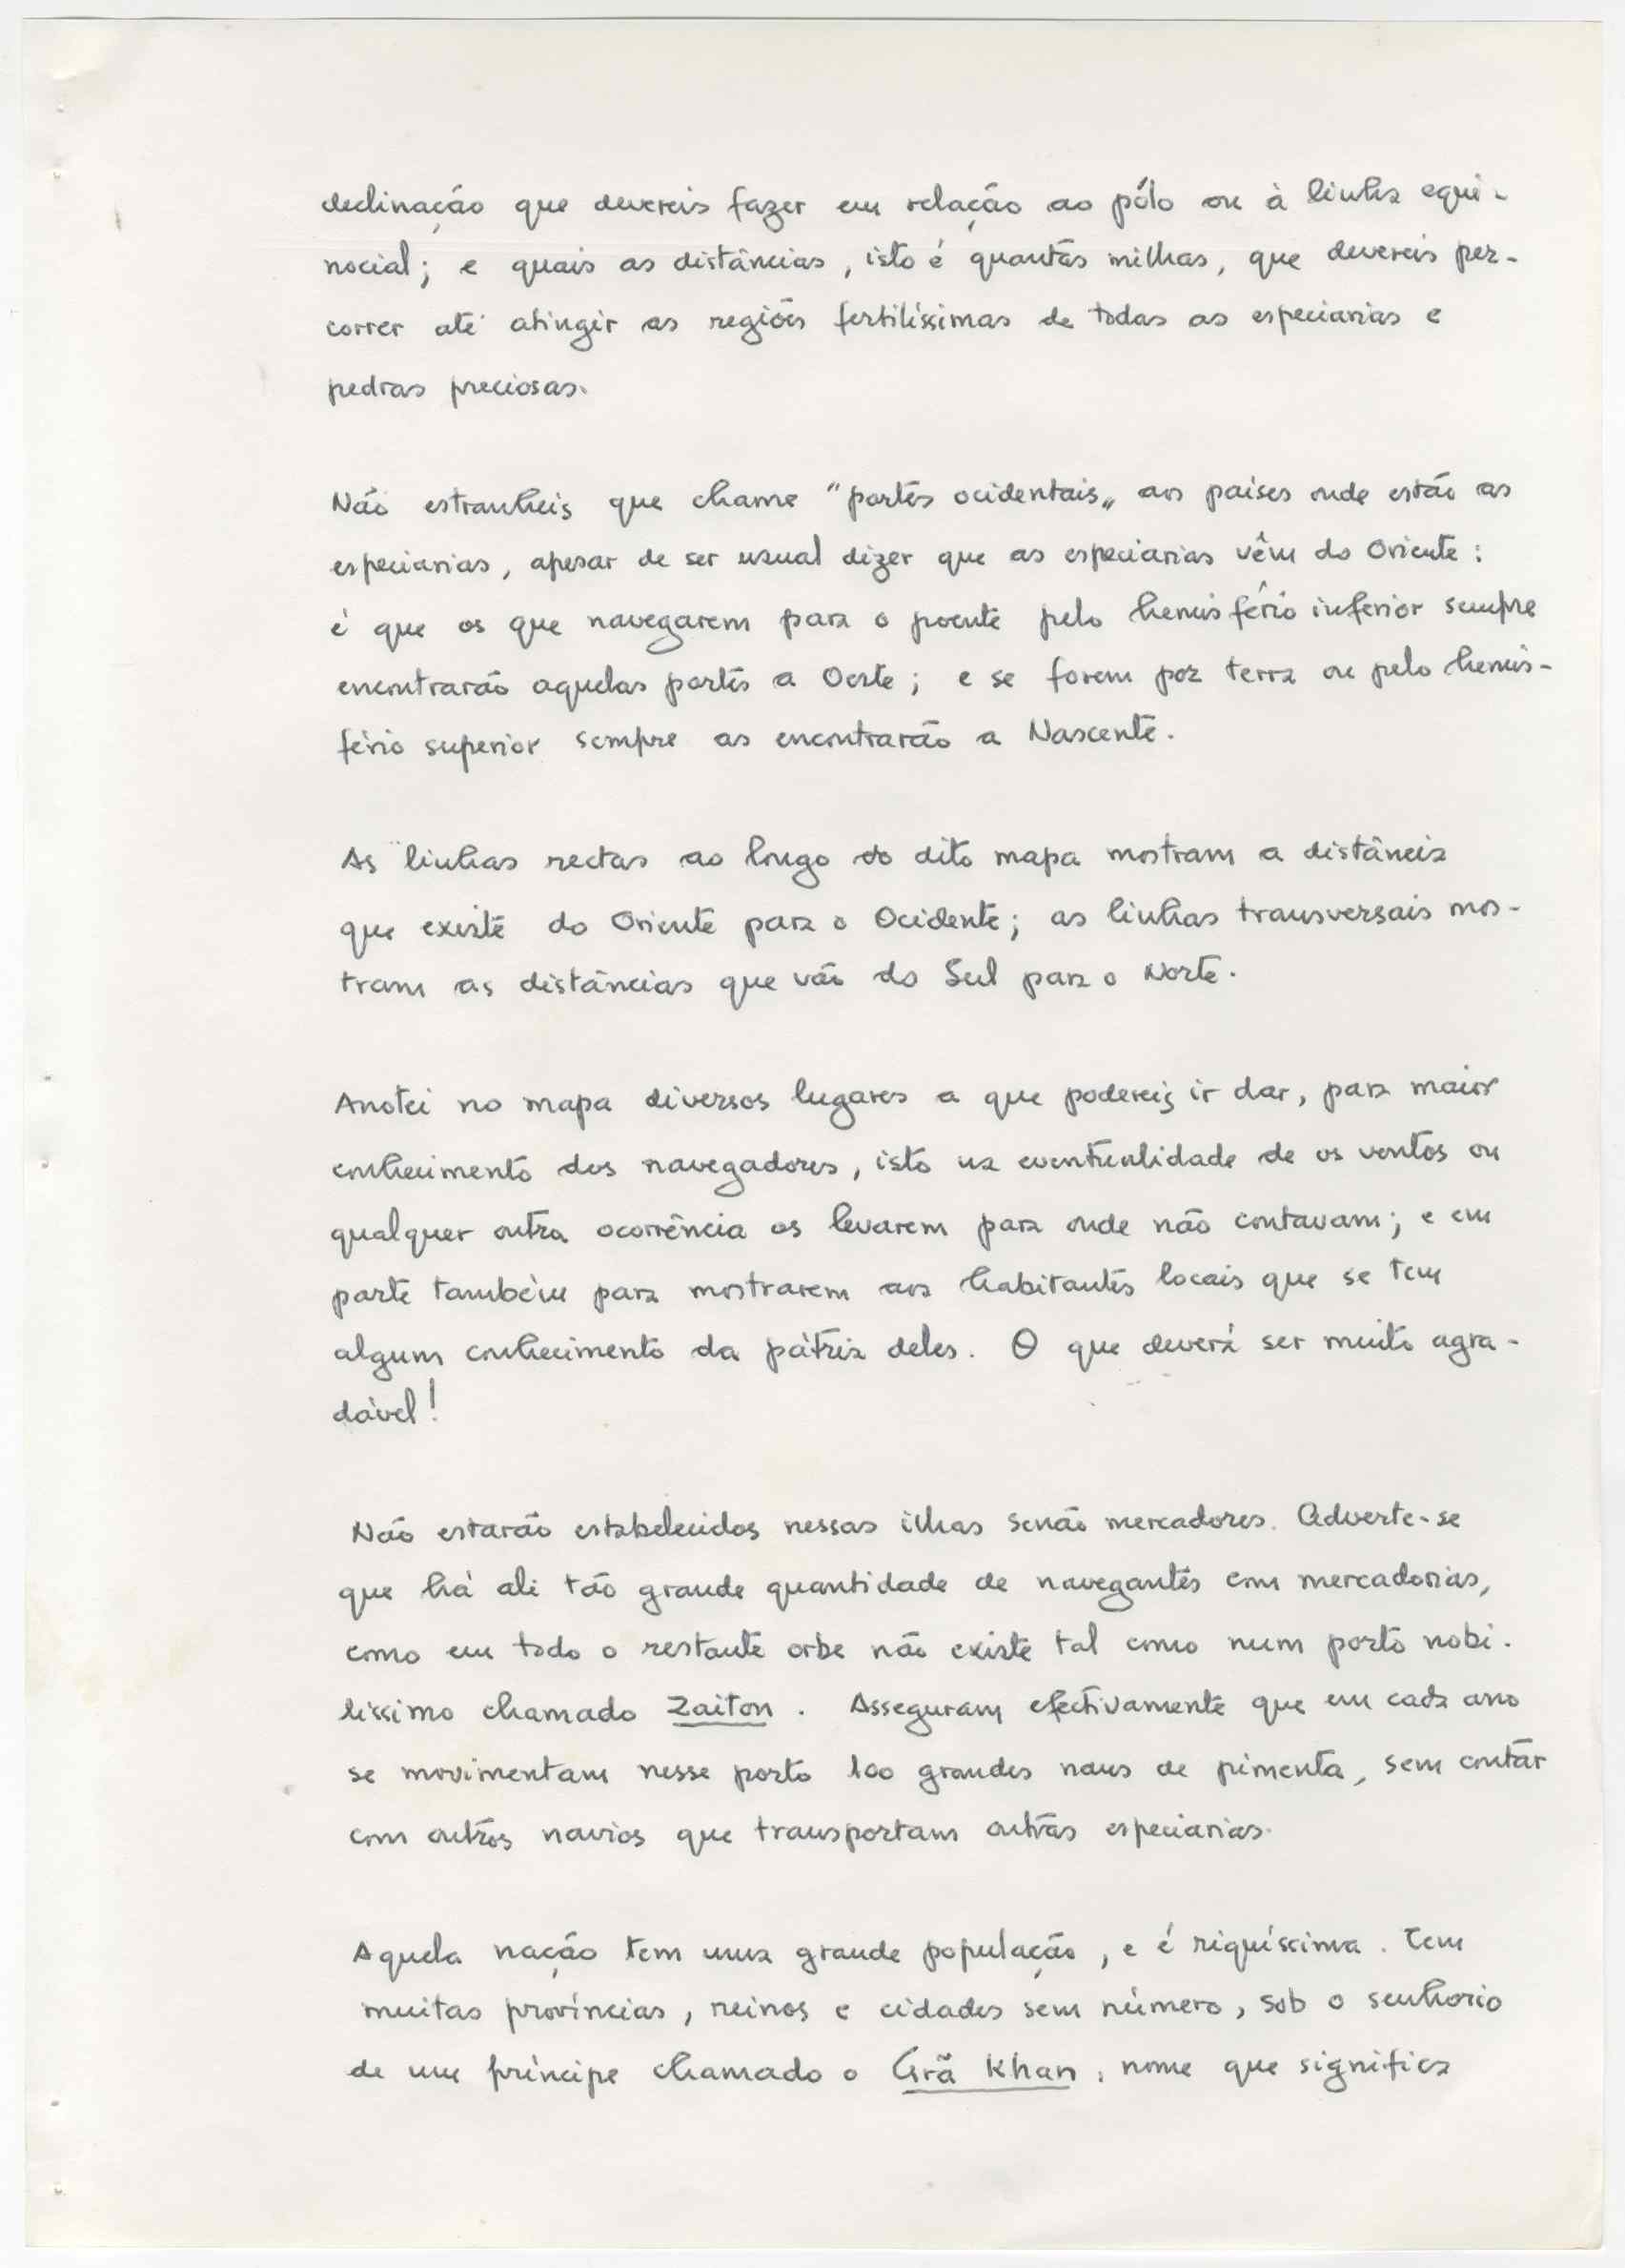 declinação que devereis fazer em relação ao pólo ou à linha equi-
nocial; e quais as distâncias, isto é quantas milhas, que devereis per-
correr até atingir as regiões fertilíssimas de todas as especiarias e
pedras preciosas.
Não estranheis que chame "partes ocidentais" aos países onde estão as
especiarias, apesar de ser usual dizer que as especiarias vêm do Oriente:
é que os que navegarem para o poente pelo hemisfério inferior sempre
encontrarão aquelas partes a Oeste; e se forem por terra ou pelo hemis-
fério superior sempre as encontrarão a Nascente.
As linhas rectas ao longo do dito mapa mostram a distância
que existe do Oriente para o Ocidente; as linhas transversais mos-
tram as distâncias que vão do Sul para o Norte.
Anotei no mapa diversos lugares a que podereis ir dar, para maior
conhecimento dos navegadores, isto na eventualidade de os ventos ou
qualquer outra ocorrência os levarem para onde não contavam; e em
parte também para mostrarem aos habitantes locais que se tem
algum conhecimento da pátria deles. O que deverá ser muito agra-
dável!
Não estarão estabelecidos nessas ilhas senão mercadores. Adverte-se
que há ali tão grande quantidade de navegantes com mercadorias,
como em todo o restante orbe não existe tal como num porto nobi-
líssimo chamado Zaiton. Asseguram efectivamente que em cada ano
se movimentam nesse porto 100 grandes naus de pimenta, sem contar
com outros navios que transportam outras especiarias.
Aquela nação tem uma grande população, e é riquíssima. Tem
muitas províncias, reinos e cidades sem número, sob o senhorio
de um príncipe chamado o Grã Khan, nome que significa